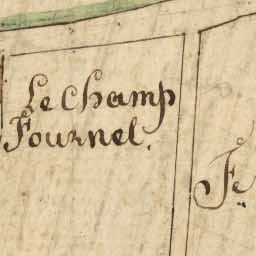 Le Champ
Fournel.